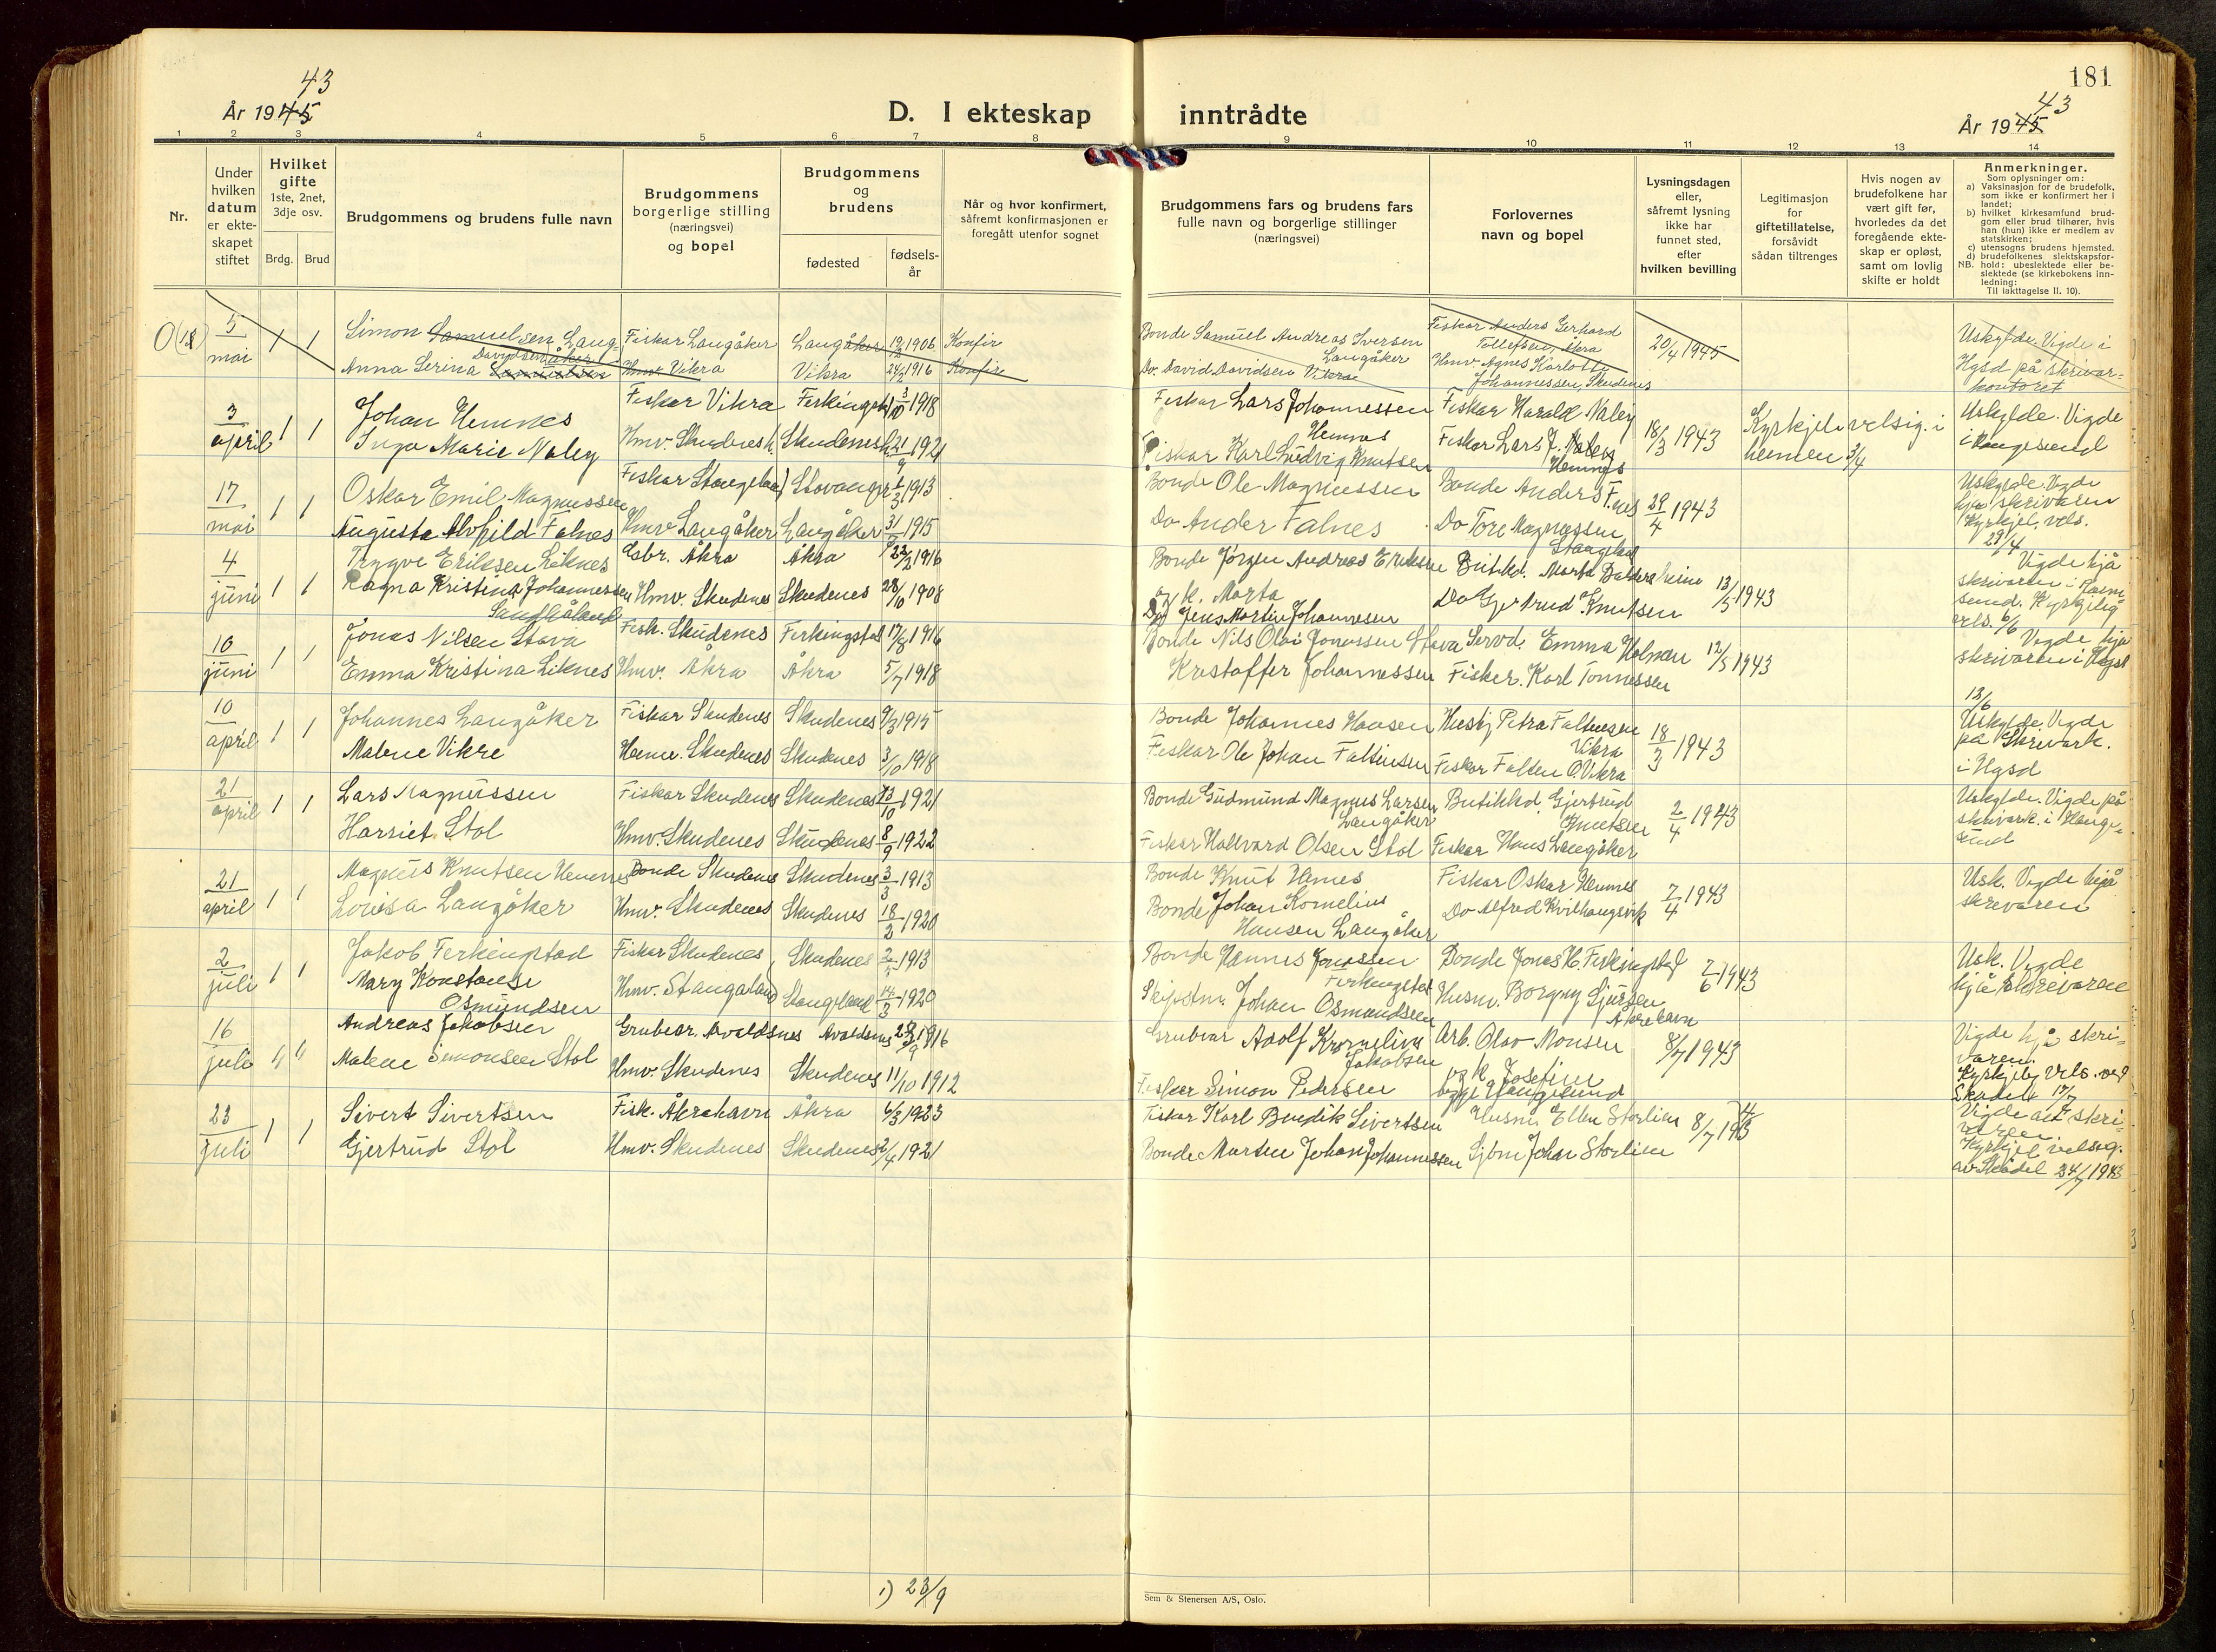 43
År 1945
D. I ekteskap
1 2 3 4 5 6 7 8
Nr.
Under
hvilken
datum
er ekte-
skapet
stiftet
Hvilket
gifte
1ste, 2net,
3dje osv.
Brdg. Brud
Brudgommens og brudens fulle navn
Brudgommens
borgerlige stilling
(næringsvei)
og bopel
Brudgommens
og
brudens
fødested
fødsels-
år
Når og hvor konfirmert,
såfremt konfirmasjonen er
foregått utenfor sognet
5 mai 1 1 Simon Samuelsen Lang- Fiskar Langåker Langåker 1906 Konfir
åker
Davidsen
Anna Serina Hmv. Vikra Vikra 1916 Konfir
3 april 1 1 Johan Hemnes Fiskar Vikra Ferkingst. 3/10 1918
Inga Marie Naley Hmv. Skudenesh. Skudenesh. 21/9 1921
17 mai 1 1 Oskar Emil Magnussen Fiskar Stangeland Stavanger 1/3 1913
Augusta Alvhild Falnes Hmv Langåker Langåker 1915
4 juni 1 1 Trygve Eriksen Liknes Gsbr. Åkra Åkra 1916
Ragna Kristina Johannessen Hmv. Skudenes Skudenes 28/10 1908
Sandhåland
10 juni 1 1 Jonas Nilsen Stava Fisk. Skudenes Ferkingstad 17/8 1916
Emma Kristina Liknes Hmv. Åkra Åkra 5/7 1918
10 april 1 1 Johannes Langåker Fiskar Skudenes Skudenes 9/3 1915
Malene Vikre Hmv. Skudenes Skudenes 3/10 1918
21 april 1 1 Lars Magnussen Fiskar Skudenes Skudenes 13/10 1921
Harriet Stol Hmv. Skudenes Skudenes 8/9 1922
21 april 1 1 Magnus Knutsen Hemnes Bonde Skudenes Skudenes 3/3 1913
Lovisa Langåker Hmv. Skudenes Skudenes 18/2 1920
2 juli 1 1 Jakob Ferkingstad Fiskar Skudenes Skudenes 1913
Mary Konstanse Hmv. Stangaland Stangeland 1920
Osmundsen
16 juli Andreas Jakobsen Grubear. Avaldsnes Avaldsnes 1916
Malene Simonsen Stol Hmv. Skudenes Skudenes 11/10 1912
23 juli 1 1 Sivert Sivertsen Fisk. Åkrahavn Åkra 6/3 1923
Gjertrud Stol Hmv. Skudenes Skudenes 2/4 1921
1) 23/9
181
43
År 1945
inntrådte
9 10 11 12 13 14
Brudgommens fars og brudens fars
fulle navn og borgerlige stillinger
(næringsvei)
Forlovernes
navn og bopel
Lysningsdagen
eller,
såfremt lysning
ikke har
funnet sted,
efter
hvilken bevilling
Legitimasjon
for
giftetillatelse,
forsåvidt
sådan tiltrenges
Hvis nogen av
brudefolkene har
vært gift før,
hvorledes da det
foregående ekte-
skap er opløst,
samt om lovlig
skifte er holdt
Anmerkninger.
Som oplysninger om:
a) Vaksinasjon for de brudefolk,
som ikke er konfirmert her i
landet;
b) hvilket kirkesamfund brud-
gom eller brud tilhører, hvis
han (hun) ikke er medlem av
statskirken;
c) utensogns brudens hjemsted.
d) brudefolkenes slektskapsfor-
hold: ubeslektede eller be-
slektede (se kirkebokens inn-
ledning:
NB.
Til iakttagelse II. 10).
Bonde Samuel Andreas Iversen Fiskar Anders Gerhard 20/4 1945 Uskylde. Vigde i
Langåker Tollefsen, Åkra
Do. David Davidsen Vikra Hmv. Agnes Karlotte Hgsd på skrivar-
Johannessen, Skudenes kontoret
Fiskar Lars Johannessen Fiskar Harald Naley 18/3 1943 Kyrkjele velsig. i Uskylde. Vigde
Hemnes
Fiskar Karl Ludvig Knutsen Fiskar Lars J. heimen 3/4 i Haugesund
Bonde Ole Magnussen Bonde Anders 29/4 1943 Uskylde. Vigde
hjå skrivaren
Do Ander Falnes Do Tore Magnussen Kyrkjel. vels.
Stangeland 29/4
Bonde Jørgen Andreas Eriksen Butikkd. Marta 13/5 1943 Vigde hjå
og k. Marta skrivaren i
Do Jens Martin Johannesen Do Gjertrud Knutsen sund. Kyrkjelig
vels. 6/6
Bonde Nils Olai Jonassen Stava Servd. Emma Holmen 12/5 1943 Vigde hjå
Kristoffer Johannessen Fisker. Karl Tønnessen skrivaren i Hgsd
13/6
Bonde Johannes Hansen Husby Petra Faltinsen 18/3 1943 Uskylde. Vigde
Vikra på Skrivark.
Fiskar Ole Johan Faltinsen Fiskar Falten O. Vikra i Hgsd
Bonde Gudmund Magnus Larsen Butikkd. Gjertrud 2/4 1943 Uskylde. Vigde på
Langåker Knutsen skrivark. i Hauge-
Fiskar Hallvard Olsen Stol Fiskar Hans Langåker sund
Bonde Knut Hemnes Fiskar Oskar Hemnes 7/4 1943 Usk. Vigde hjå
Bonde Johan Kornelius Do Alfred Kvilhaugsvik skrivaren
Hansen Langåker
Bonde Hannes Jonassen Bonde Jonas H. Ferkingstad 7/6 1943 Usk. Vigde
Ferkingstad
Skipstm. Johan Osmundsen Husm. Borgny Sjursen hjå skrivaren
Åkrehavn
Grubear Adolf Kornelius Arb. Olav Monsen 8/7 1943 Vigde hjå skri-
Jakobsen og k. Josefine varen.
Fiskar Simon Pedersen begge Haugesund Kyrkjeleg vels. ved
Skadel 17/7
Fiskar Karl Bendik Sivertsen Husm. Ellen Storlien 8/7 1943 Vigde av skri-
varen.
Bonde Marten Johan Johannessen Sjøm Johan Storlien Kyrkjel. velsig.
av Skadel 24/7 1943
Sem & Stenersen A/S, Oslo.